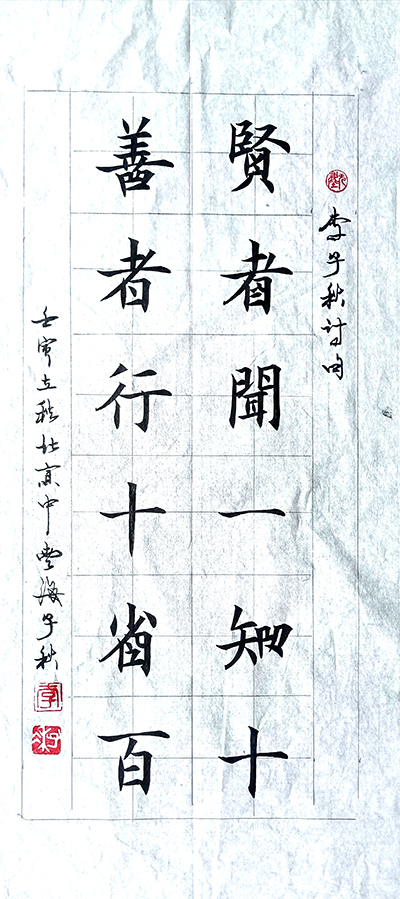 李子秋诗句
賢者聞一知十
善者行十省百
壬寅立秋於京中雲海子秋